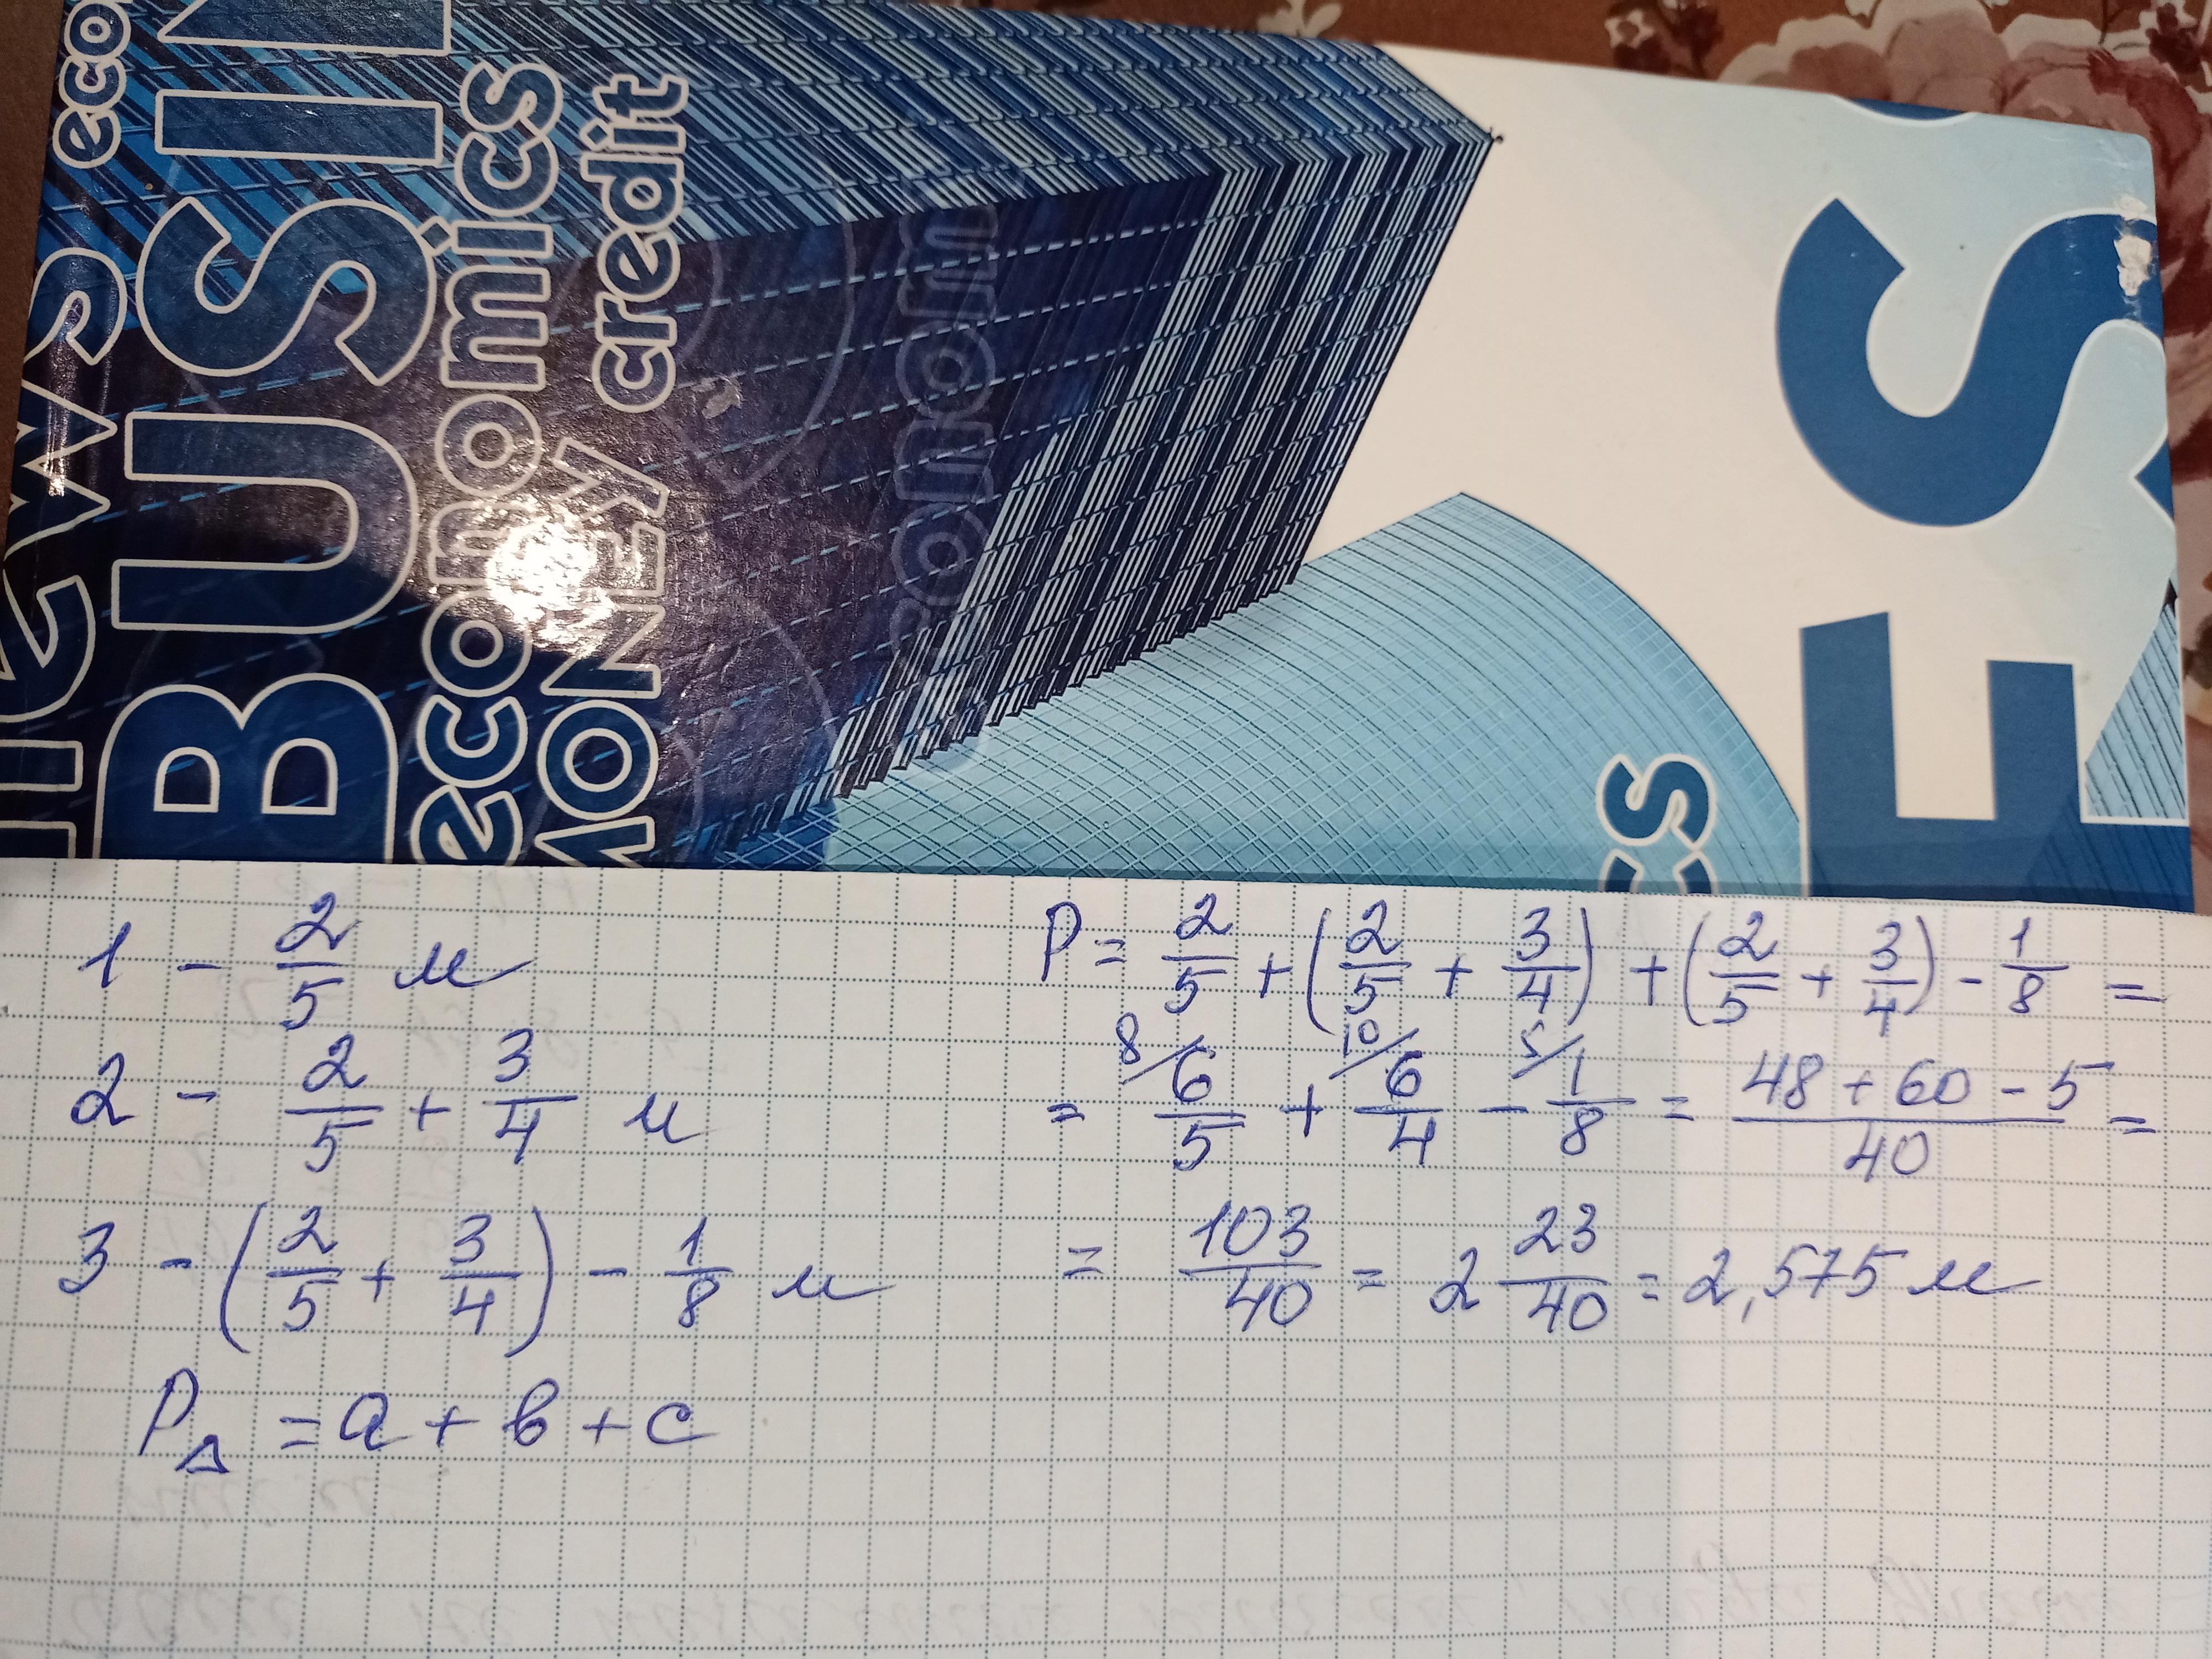 news
eco
BUSIN
economics
MONEY
credit
ES
cs
1 - 2/5 м
2 - 2/5 + 3/4 м
3 - (2/5 + 3/4) - 1/8 м
P△ = a + b + c
P = 2/5 + (2/5 + 3/4) + (2/5 + 3/4) - 1/8 =
= 8/ 6/5 + 10/ 6/4 - 5/ 1/8 = (48 + 60 - 5)/40 =
= 103/40 = 2 23/40 = 2,575 м